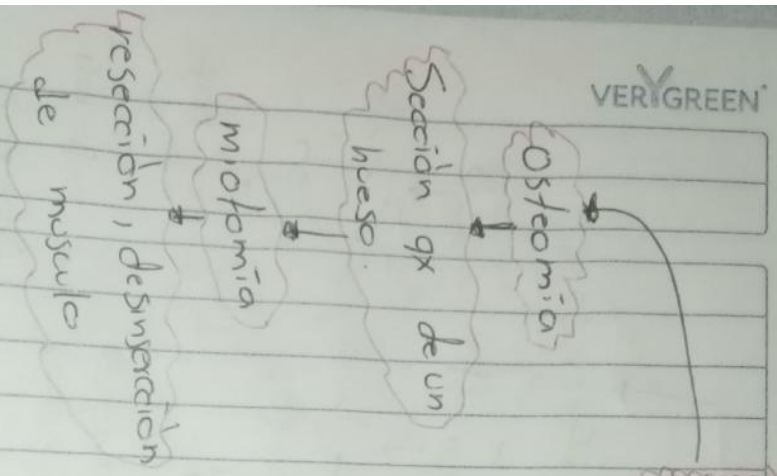 VERYGREEN
Osteomía
Sección qx de un
hueso.
miotomía
resección, desinserción
de musculo